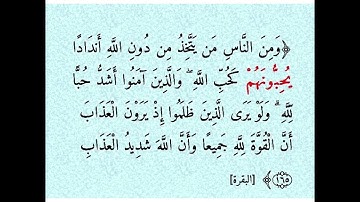 ﴿وَمِنَ النَّاسِ مَن يَتَّخِذُ مِن دُونِ اللَّهِ أَندَادًا
يُحِبُّونَهُمْ كَحُبِّ اللَّهِ ۖ وَالَّذِينَ آمَنُوا أَشَدُّ حُبًّا
لِّلَّهِ ۗ وَلَوْ يَرَى الَّذِينَ ظَلَمُوا إِذْ يَرَوْنَ الْعَذَابَ
أَنَّ الْقُوَّةَ لِلَّهِ جَمِيعًا وَأَنَّ اللَّهَ شَدِيدُ الْعَذَابِ
﴿١٦٥﴾ [البقرة]